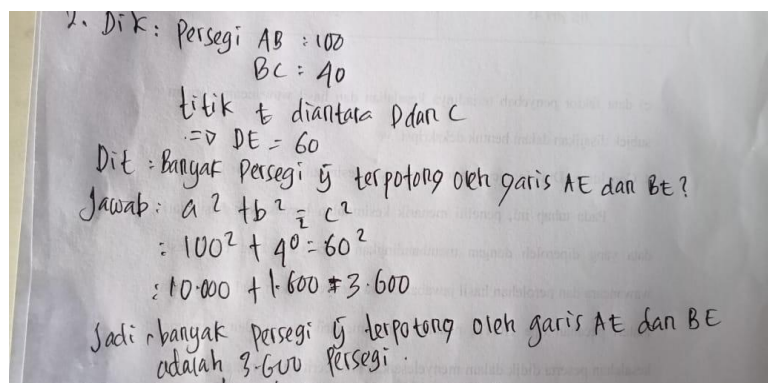 2. Dik: Persegi AB : 100
BC : 40
titik E diantara D dan C
=> DE = 60
Dit : Banyak Persegi yg terpotong oleh garis AE dan BE?
Jawab : a² + b² = c²
: 100² + 40 = 60²
: 10.000 + 1.600 ≠ 3.600
Jadi, banyak Persegi yg terpotong oleh garis AE dan BE
adalah 3.600 Persegi.